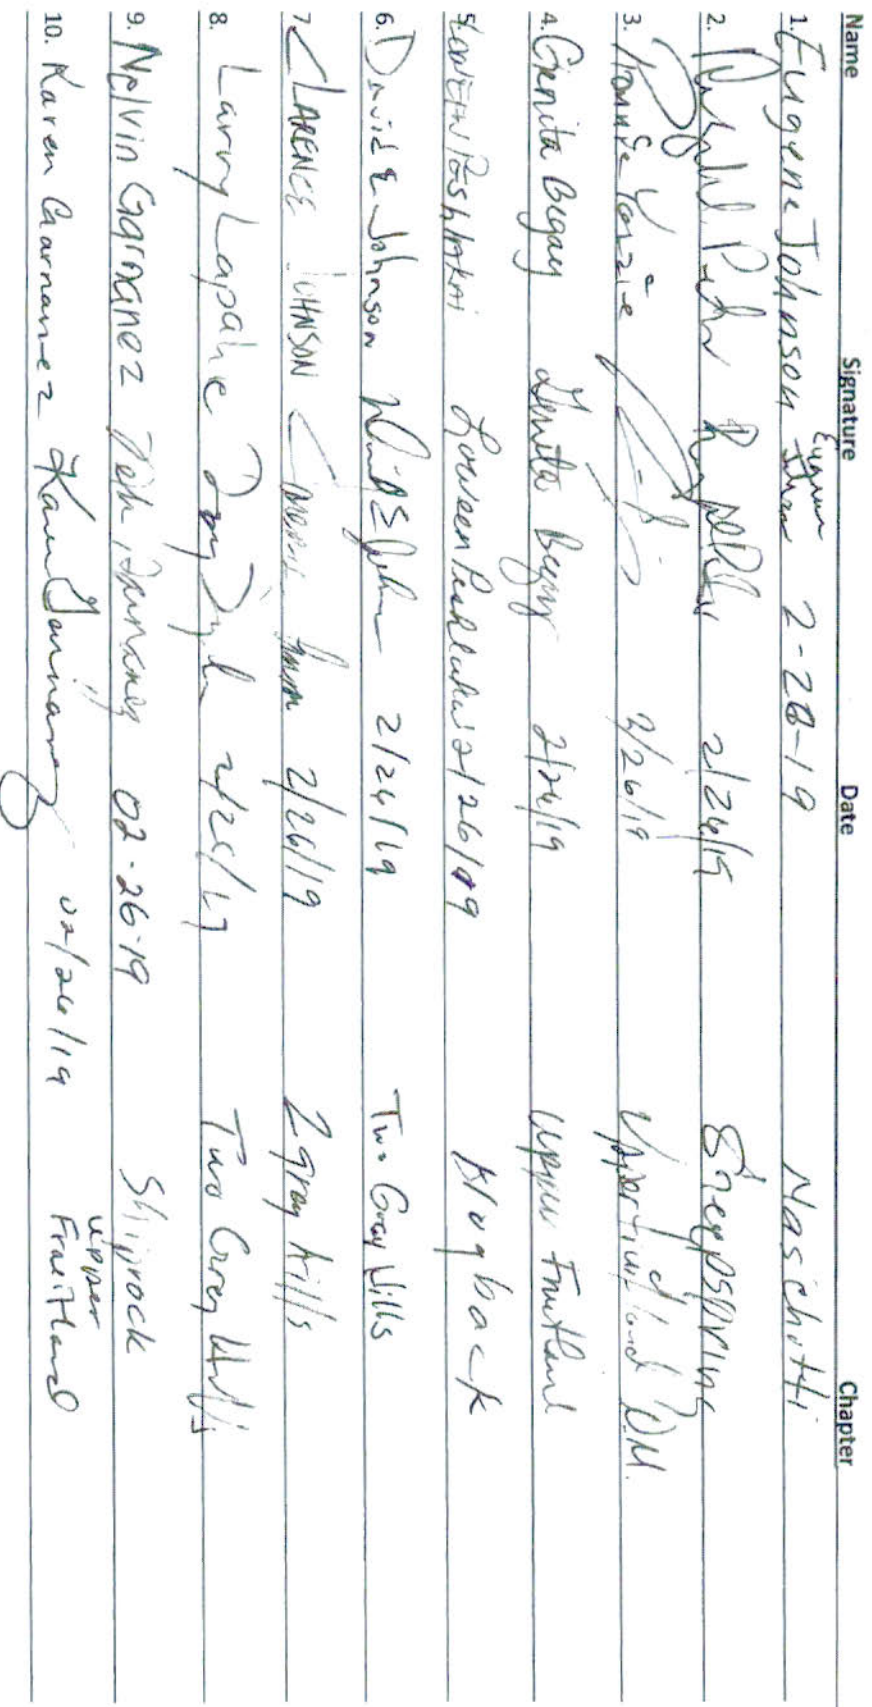 Name Signature Date Chapter
1. Eugene Johnson Eugene 2-26-19 Naschitti
2. 2/26/19 Sheepspring
3. Yazzie 2/26/19 Upper Fruitland N.M.
4. Genita Begay Genita Begay 2/26/19 Upper Fruitland
5. Loween Peshlakai Loween Peshlakai 2/26/19 Hogback
6. David E Johnson David E John 2/26/19 Two Gray Hills
7. CLARENCE JOHNSON 2/26/19 2 gray hills
8. Larry Lapahie 2/26/19 Two Grey Hills
9. Nelvin Garnanez 02-26-19 Shiprock
10. Karen Garnanez Karen Garnanez 02/26/19 Upper Fruitland